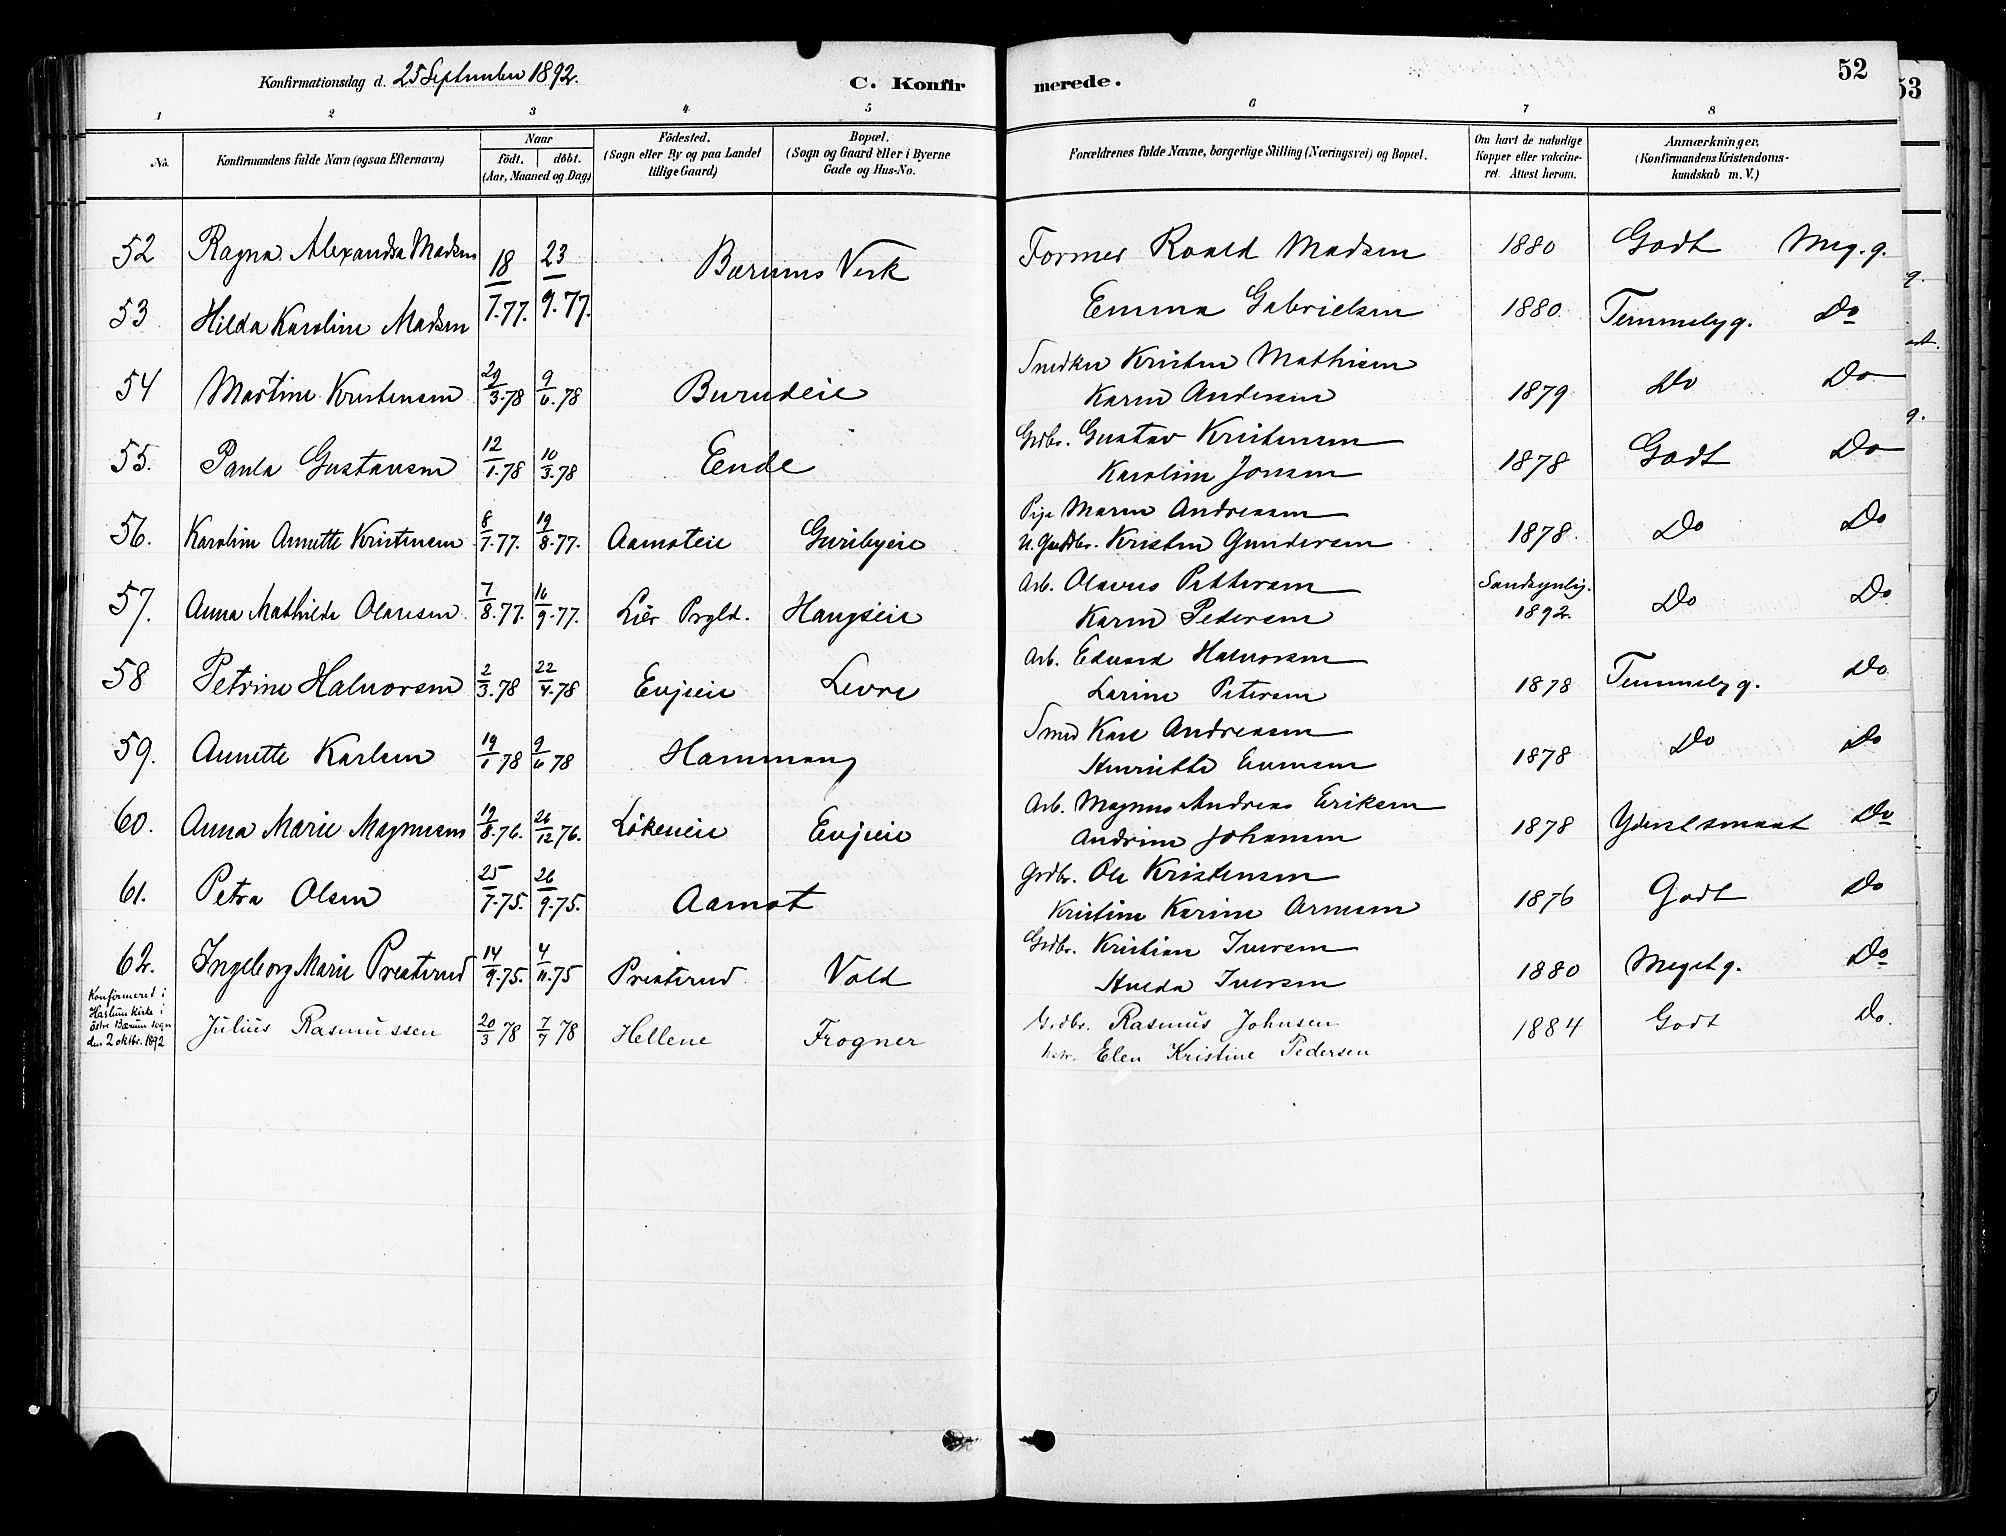 Konfirmationsdag d. 25 September 1892.
C. Konfirmerede.
52
53
1 2 3 4 5 6 7 8
No.
Konfirmandens fulde Navn (ogsaa Efternavn)
Naar
födt. döbt.
(Aar, Maaned og Dag)
Födested.
(Sogn eller By og paa Landet
tillige Gaard)
Bopæl.
(Sogn og Gaard eller i Byerne
Gade og Hus-No.
Forældrenes fulde Navne, borgerlige Stilling (Næringsvei) og Bopæl.
Om havt de naturlige
Kopper eller vakcine-
ret. Attest herom.
Anmærkninger.
(Konfirmandens Kristendoms-
kundskab m. V.)
52 Ragna Alexandra Madsen 18/7.77. 23/9.77. Bærums Verk Former Roald Madsen 1880 Godt Meg. g.
53 Hilda Karoline Madsen Emma Gabrielsen 1880 Temmelig g. Do
54 Martine Kristensen 29/3.78 9/6.78 Burudeie Snedker Kristen Mathisen
Karen Andersen 1879 Do Do
55. Paula Gustavsen 12/1.78 10/3.78 Ende Grdbr. Gustav Kristensen
Karoline Jonsen 1878 Godt Do
56. Karoline Annette Kristensen 8/7.77. 19/8.77. Aamoteie Guribyeie Pige Maren Andreasen
U. Grdbr. Kristen Gundersen 1878. Do Do
57. Anna Mathilde Olavesen 7/8.77. 16/9.77. Lier Prgld. Haugseie Arb. Olavus Pettersen
Karen Pedersen Sandsynlig. 1892. Do Do
58 Petrine Halvorsen 2/3.78 22/4.78 Evjeie Levre Arb. Edvard Halvorsen
Larine Petersen 1878 Temmelig g. Do
59. Annette Karlsen 19/1.78 9/6 78 Hammang Smed Karl Andreasen
Henriette Evensen 1878 Do Do
60. Anna Marie Magnusen 19/8.76. 26/12.76. Løkeneie Evjeie Arb. Magnus Andreas Eriksen
Andrine Johansen 1878 Yderst smaat Do
61. Petra Olsen 25/7.75. 26/9.75. Aamot Grdbr. Ole Kristensen
Kristine Karine Arnesen 1876 Godt Do
62. Ingeborg Marie Presterud 14/9.75. 4/11.75 Presterud Vold Grdbr. Kristian Iversen
Hulda Iversen 1880 Meget g. Do
Konfirmeret i
Haslum kirke i
östre Bærum sogn
den 2 oktbr. 1892
Julius Rasmussen 20/3 78 7/7 78 Hellene Frogner Grdbr. Rasmus Johnsen
Elen Kristine Pedersen 1884 Godt Do.